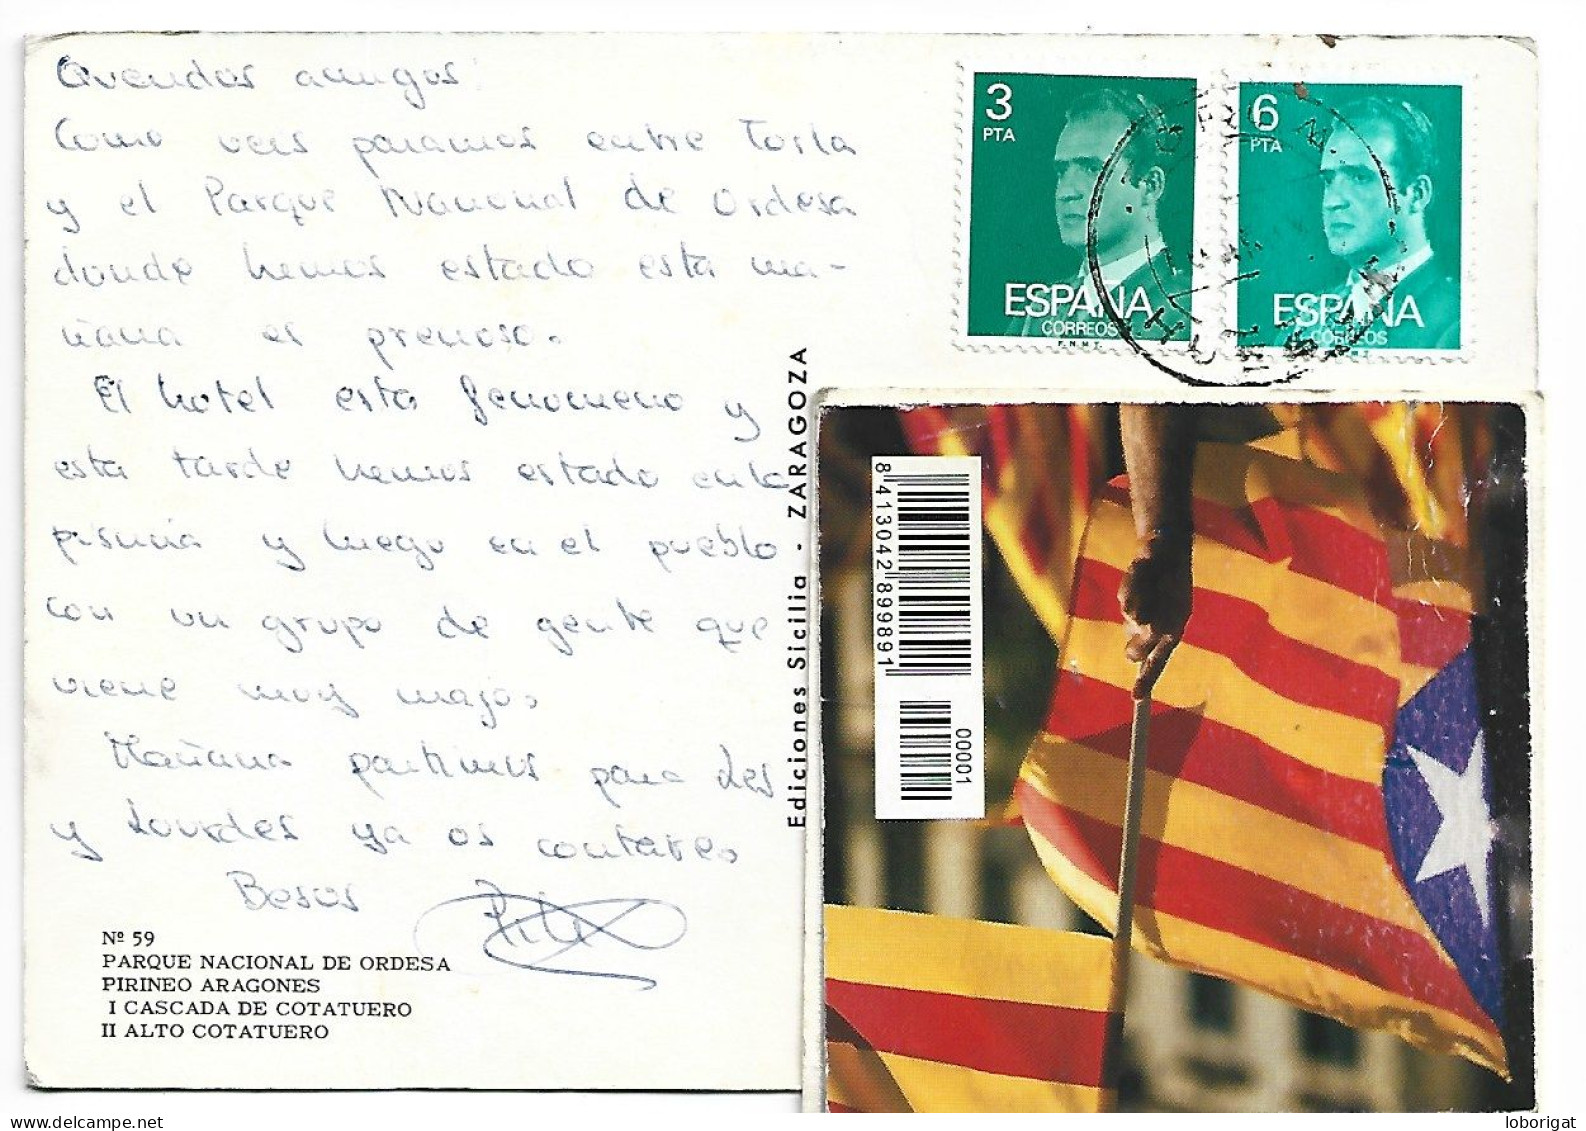 Queridos amigos:
Como veis paramos entre Torla
y el Parque Nacional de Ordesa
donde hemos estado esta ma-
ñana es precioso.
El hotel esta fenomeno y
esta tarde hemos estado en la
piscina y luego en el pueblo
con un grupo de gente que
viene muy majo.
Mañana partimos para Les
y Lourdes ya os contare.
Besos
Nº 59
PARQUE NACIONAL DE ORDESA
PIRINEO ARAGONES
I CASCADA DE COTATUERO
II ALTO COTATUERO
Ediciones Sicilia - ZARAGOZA
3
PTA
ESPAÑA
CORREOS
F.N.M.T.
6
PTA
ESPAÑA
CORREOS
8 413042 899891
00001
delcampe.net
loborigat